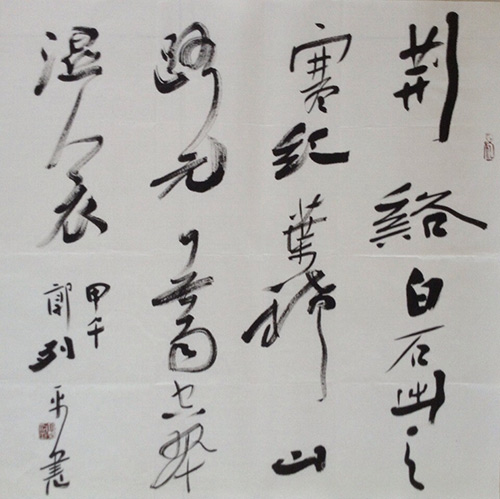 荆谿白石出天
寒紅葉稀山
路元無雨空翠
湿人衣
甲午
郭列平書